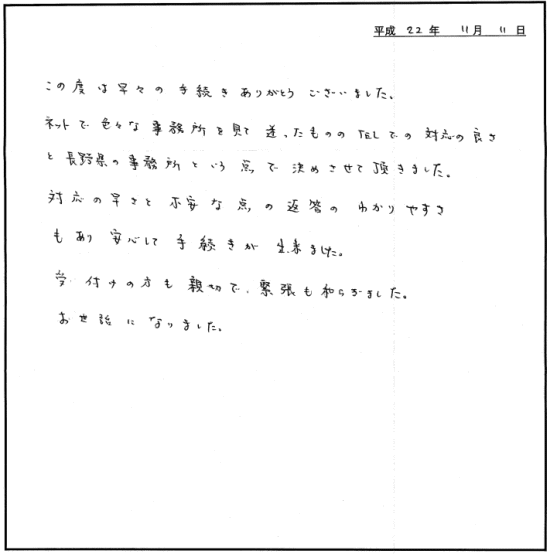 平成 22 年 11 月 11 日
この度は早々の手続きありがとうございました。
ネットで色々な事務所を見て迷ったもののTELでの対応の良さ
と長野県の事務所という点で決めさせて頂きました。
対応の早さと不安な点の返答のわかりやすさ
もあり安心して手続きが出来ました。
受付けの方も親切で、緊張も和らぎました。
お世話になりました。